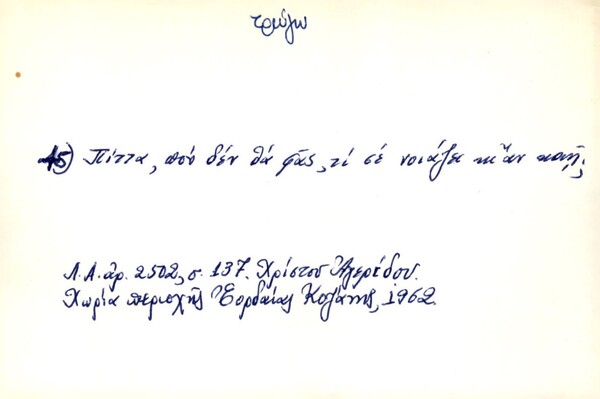 τρώγω
15) Πίττα, πού δέν θά φᾶς, τί σέ νοιάζει κι ἄν καῇ;
Λ.Α. ἀρ. 2502, σ. 137. Χρίστου
Χωρία περιοχῆς Ἑορδαίας Κοζάνης, 1962.